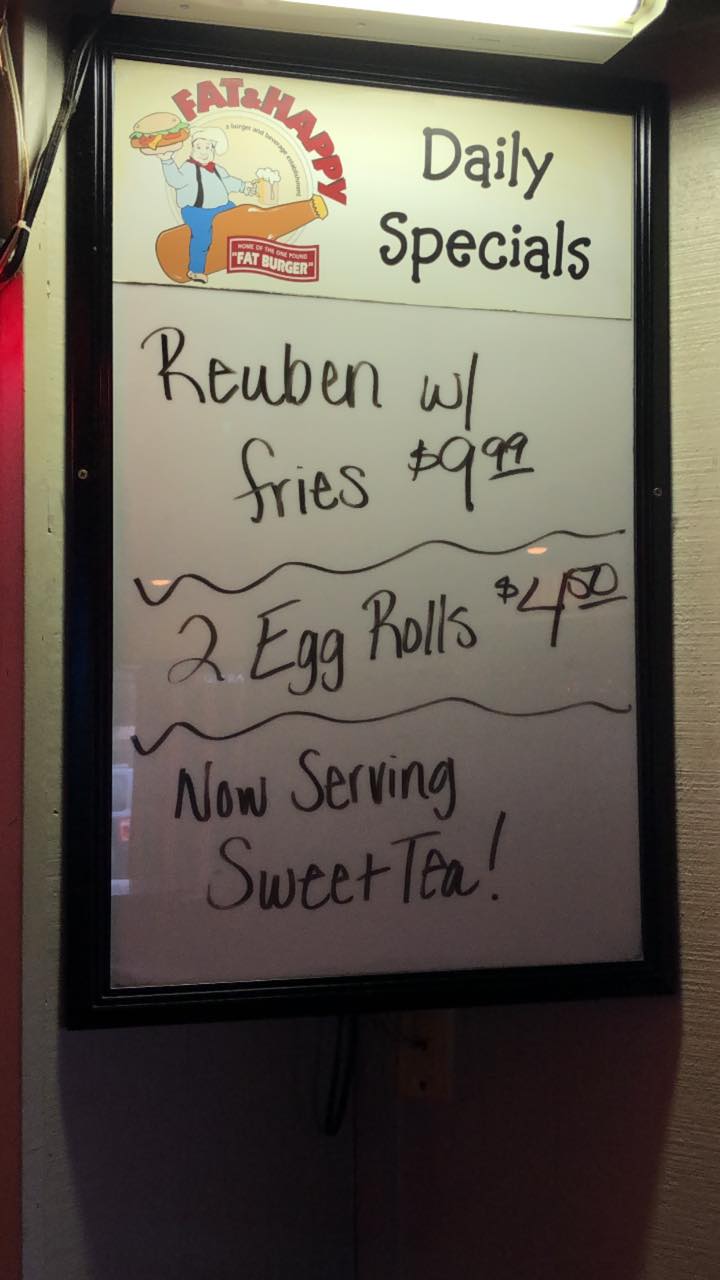 FAT & HAPPY
a burger and beverage establishment
HOME OF THE ONE POUND
"FAT BURGER"
Daily
Specials
Reuben w/
fries $9.99
2 Egg Rolls $4.50
Now Serving
Sweet Tea!